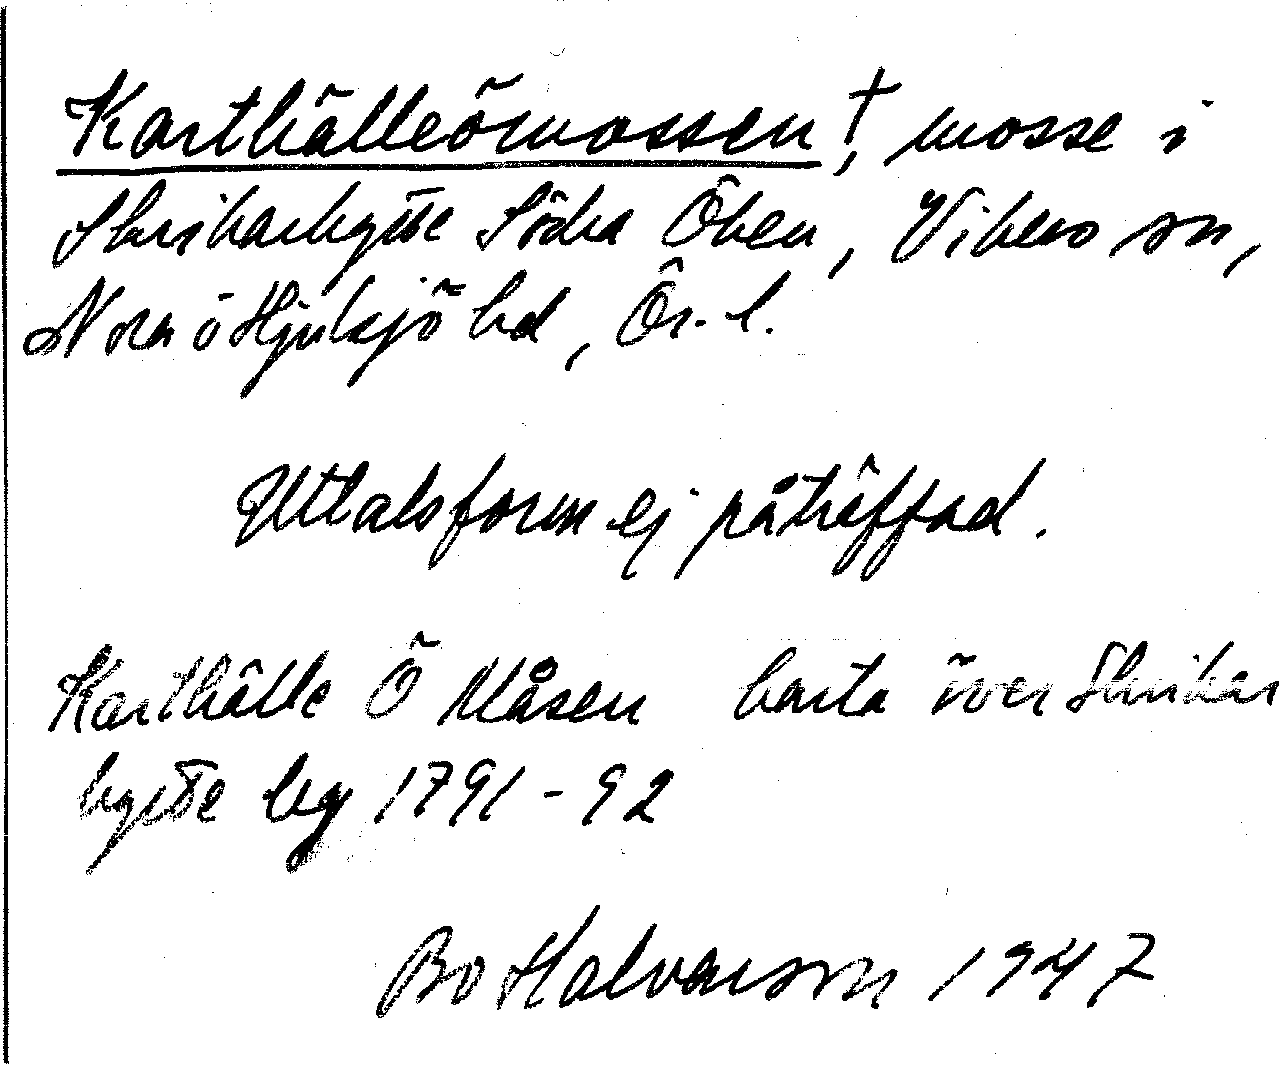 Karthälleömossen†, mosse i
Skrikarhytte Södra Öken, Vikers sn,
Nora ö Hjulsjö hd, Ör. l.
Uttalsform ej påträffad.
Karthälle Ö Måsen karta över Skrikar
hytte beg 1791-92
Bo Halvarson 1947